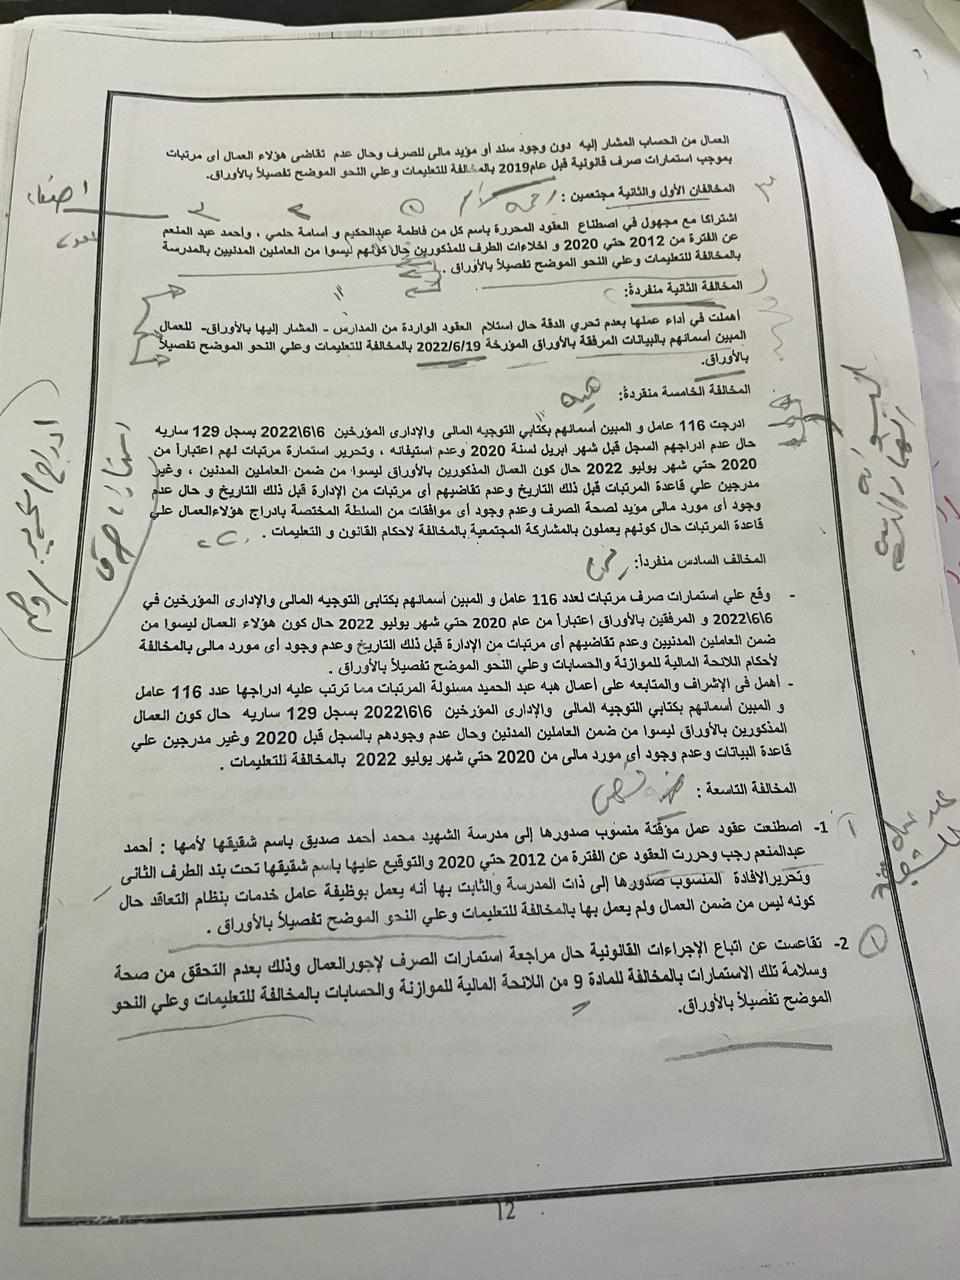 العمال من الحساب المشار إليه دون وجود سند أو مؤيد مالى للصرف وحال عدم تقاضى هؤلاء العمال أى مرتبات
بموجب استمارات صرف قانونية قبل عام2019 بالمخالفة للتعليمات وعلي النحو الموضح تفصيلاً بالأوراق.
المخالفان الأول والثانية مجتمعين :
اشتراكا مع مجهول في اصطناع العقود المحررة باسم كل من فاطمة عبدالحكيم و أسامة حلمي ، وأحمد عبد المنعم
عن الفترة من 2012 حتي 2020 و اخلاءات الطرف للمذكورين حال كونهم ليسوا من العاملين المدنيين بالمدرسة
بالمخالفة للتعليمات وعلي النحو الموضح تفصيلاً بالأوراق .
المخالفة الثانية منفردة:
أهملت في أداء عملها بعدم تحري الدقة حال استلام العقود الواردة من المدارس - المشار إليها بالأوراق- للعمال
المبين أسمائهم بالبيانات المرفقة بالأوراق المؤرخة 2022/6/19 بالمخالفة للتعليمات وعلي النحو الموضح تفصيلاً
بالأوراق.
المخالفة الخامسة منفردة: هبه
ادرجت 116 عامل و المبين أسمائهم بكتابي التوجيه المالى والإدارى المؤرخين 6\6\2022 بسجل 129 ساريه
حال عدم ادراجهم السجل قبل شهر ابريل لسنة 2020 وعدم استيفائه ، وتحرير استمارة مرتبات لهم اعتباراً من
2020 حتي شهر يوليو 2022 حال كون العمال المذكورين بالأوراق ليسوا من ضمن العاملين المدنين ، وغير
مدرجين علي قاعدة المرتبات قبل ذلك التاريخ وعدم تقاضيهم أى مرتبات من الإدارة قبل ذلك التاريخ و حال عدم
وجود أى مورد مالى مؤيد لصحة الصرف وعدم وجود أى موافقات من السلطة المختصة بادراج هؤلاءالعمال علي
قاعدة المرتبات حال كونهم يعملون بالمشاركة المجتمعية بالمخالفة لاحكام القانون و التعليمات .
المخالف السادس منفرداً:
- وقع علي استمارات صرف مرتبات لعدد 116 عامل و المبين أسمائهم بكتابى التوجيه المالى والإدارى المؤرخين في
6\6\2022 و المرفقين بالأوراق اعتباراً من عام 2020 حتي شهر يوليو 2022 حال كون هؤلاء العمال ليسوا من
ضمن العاملين المدنيين وعدم تقاضيهم أى مرتبات من الإدارة قبل ذلك التاريخ وعدم وجود أى مورد مالى بالمخالفة
لأحكام اللائحة المالية للموازنة والحسابات وعلي النحو الموضح تفصيلاً بالأوراق .
- أهمل فى الإشراف والمتابعه على أعمال هبه عبد الحميد مسئولة المرتبات مما ترتب عليه ادراجها عدد 116 عامل
و المبين أسمائهم بكتابي التوجيه المالى والإدارى المؤرخين 6\6\2022 بسجل 129 ساريه حال كون العمال
المذكورين بالأوراق ليسوا من ضمن العاملين المدنين وحال عدم وجودهم بالسجل قبل 2020 وغير مدرجين علي
قاعدة البيانات وعدم وجود أى مورد مالى من 2020 حتي شهر يوليو 2022 بالمخالفة للتعليمات .
المخالفة التاسعة :
1- اصطنعت عقود عمل مؤقتة منسوب صدورها إلى مدرسة الشهيد محمد أحمد صديق باسم شقيقها لأمها : أحمد
عبدالمنعم رجب وحررت العقود عن الفترة من 2012 حتي 2020 والتوقيع عليها باسم شقيقها تحت بند الطرف الثانى
وتحريرالافادة المنسوب صدورها إلى ذات المدرسة والثابت بها أنه يعمل بوظيفة عامل خدمات بنظام التعاقد حال
كونه ليس من ضمن العمال ولم يعمل بها بالمخالفة للتعليمات وعلي النحو الموضح تفصيلاً بالأوراق .
2- تقاعست عن اتباع الإجراءات القانونية حال مراجعة استمارات الصرف لاجورالعمال وذلك بعدم التحقق من صحة
وسلامة تلك الاستمارات بالمخالفة للمادة 9 من اللائحة المالية للموازنة والحسابات بالمخالفة للتعليمات وعلي النحو
الموضح تفصيلاً بالأوراق.
12